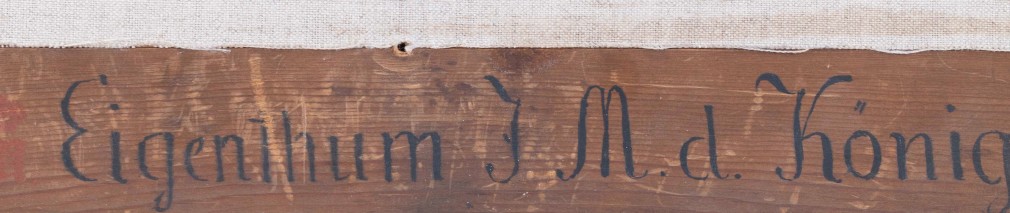 Eigenthum J. M. d. König